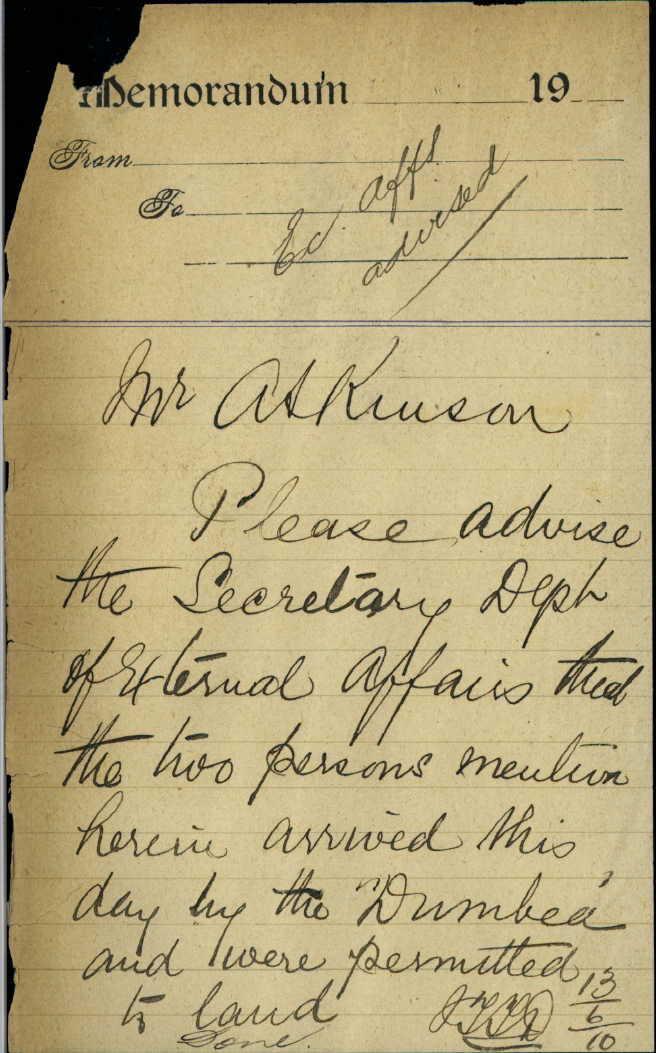 Memorandum 19
From
To
Ex. Affs
advised
Mr Atkinson
Please advise
the Secretary Dept
of External Affairs that
the two persons mention
herein arrived this
day by the "Dumbea"
and were permitted
to land
13
6
10
Done.